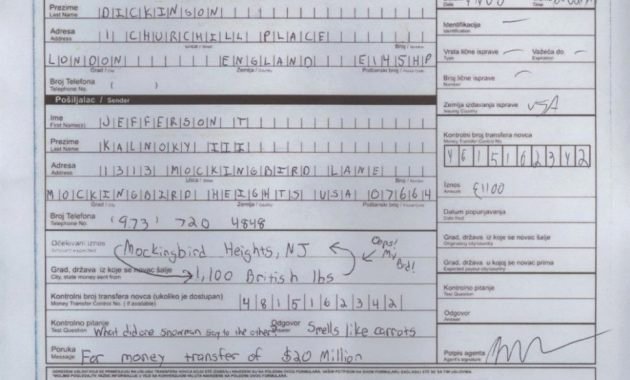 Prezime
Last Name
DICKINSON
Adresa
Address
1 CHURCHILL PLACE
Broj
LONDON ENGLAND E145HP
Grad / City
Zemlja / Country
Poštanski broj
Broj Telefona
Telephone No.
( )
Pošiljalac / Sender
Ime
First Name(s)
JEFFERSON T
Prezime
Last Name
KALNOKY III
Adresa
Address
1313 MOCKINGBIRD LANE
Ulica / Street
Broj
MOCKINGBIRD HEIGHTS USA 07664
Grad / City
Zemlja / Country
Broj Telefona
Telephone No.
(973) 720 4848
Očekivani iznos
Amount expected
Mockingbird Heights, NJ
Oops!
My
Bad!
Grad, država iz koje se novac šalje
City, state money sent from
1,100 British lbs
Kontrolni broj transfera novca (ukoliko je dostupan)
Money Transfer Control No. (if available)
4815162342
Kontrolno pitanje
Test Question
What did one snowman say to the other?
Odgovor
Answer
Smells like carrots
Poruka
Message
For money transfer of $20 Million
Date
Identifikacija
Identification
Vrsta lične isprave
Type
Važeća do
Expiration
Broj lične isprave
Zemlja izdavanja isprave
Issuing Country
USA
Kontrolni broj transfera novca
Money Transfer Control No.
4615162342
Iznos
Amount
£1100
Datum popunjavanja
Grad, država iz koje se novac šalje
Originating city/country
Grad, država u kojoj se novac prima
Expected payout city/country
Kontrolno pitanje
Test Question
Odgovor
Answer
Potpis agenta
Agent's signature